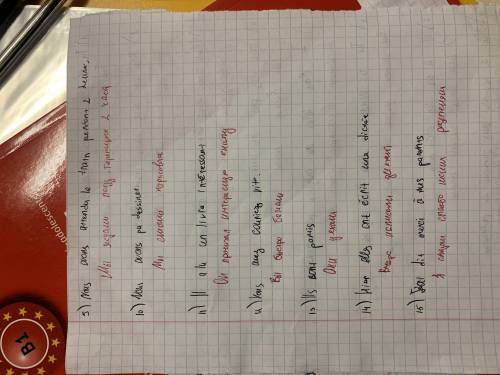 9) Nous avons attendu le train pendant 2 heures.
Мы ждали поезд 2 часа
10) Nous avons pu dessiner.
Мы смогли
11) Il a lu un livre intéressant
Он прочитал интересную книгу
12) Vous avez couru vite.
Вы быстро бежали
13) Ils sont partis
Они уехали
14) Hier elles ont écrit une dictée
Вчера написали диктант
15) J'ai dit merci à mes parents
Я сказал спасибо моим родителям
adolescence
B1